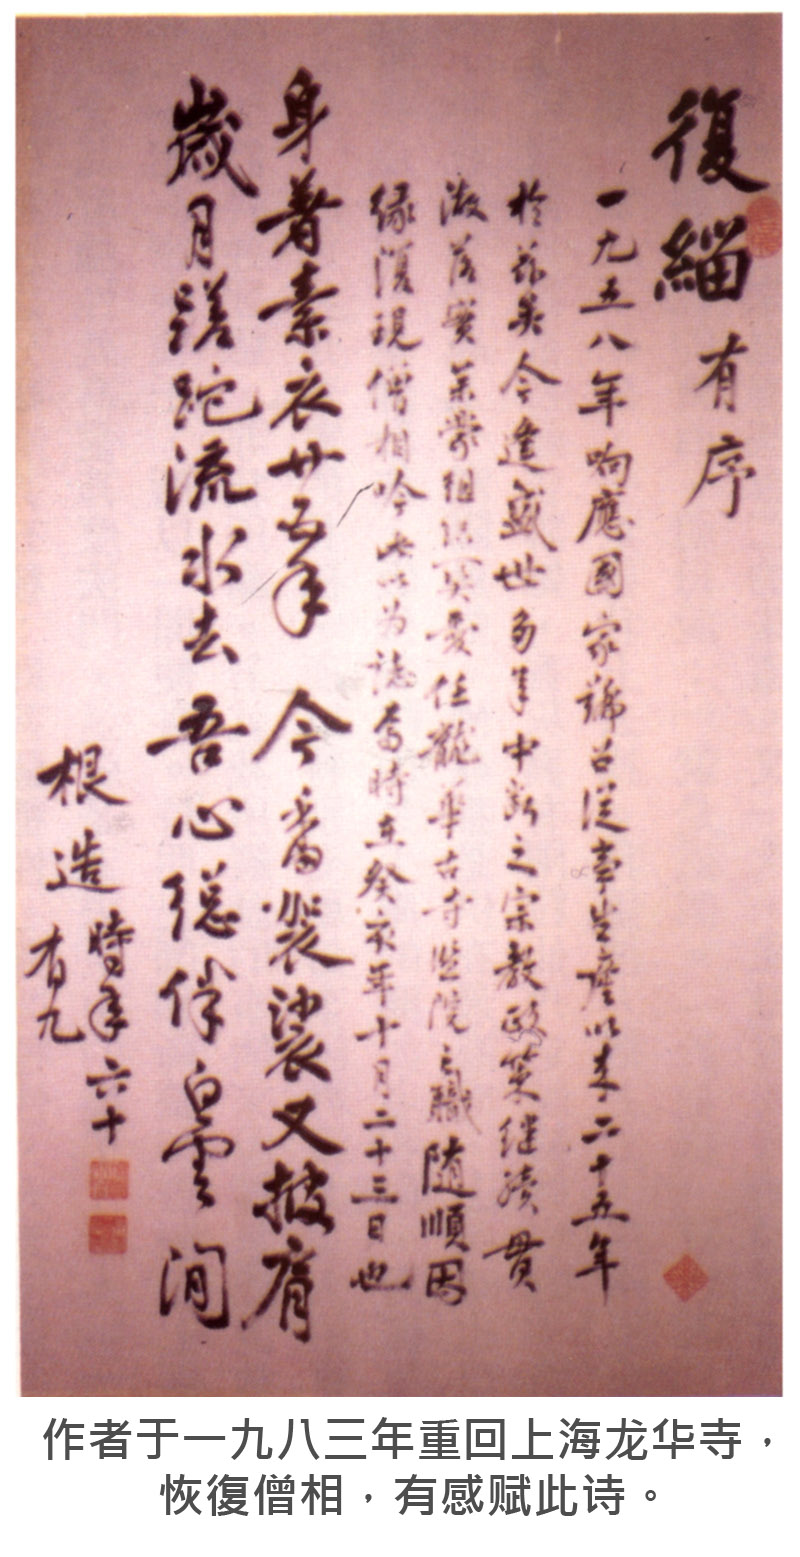 復緇有序
一九五八年响應國家號召從事生產以来二十五年
於茲矣今逢盛世多年中断之宗教政策继續貫
澈落實並蒙组织關愛任龍華古寺监院之職随順因
缘復現僧相吟此以为誌奮時在癸亥年十月二十三日也
身着素衣廿五年今番袈裟又披肩
歲月蹉跎流水去吾心總伴白雲间
根造時年六十
有九
作者于一九八三年重回上海龙华寺，
恢復僧相，有感赋此诗。